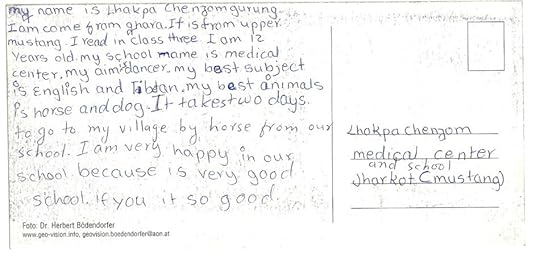 my name is Lhakpa Chenzomgurung.
I am come from ghara. It is from upper
mustang. I read in class three I am 12
Years old. my school name is medical
center. my aim dancer. my best subject
is English and Tibtan. my best animals
is horse and dog. It takes two days.
to go to my village by horse from our
school. I am very happy in our
school because is very good
school. if you it so good.
Foto: Dr. Herbert Bödendorfer
www.geo-vision.info, geovision.boedendorfer@aon.at
Lhakpa Chenzom
medical center
and school
Jharkot (mustang)